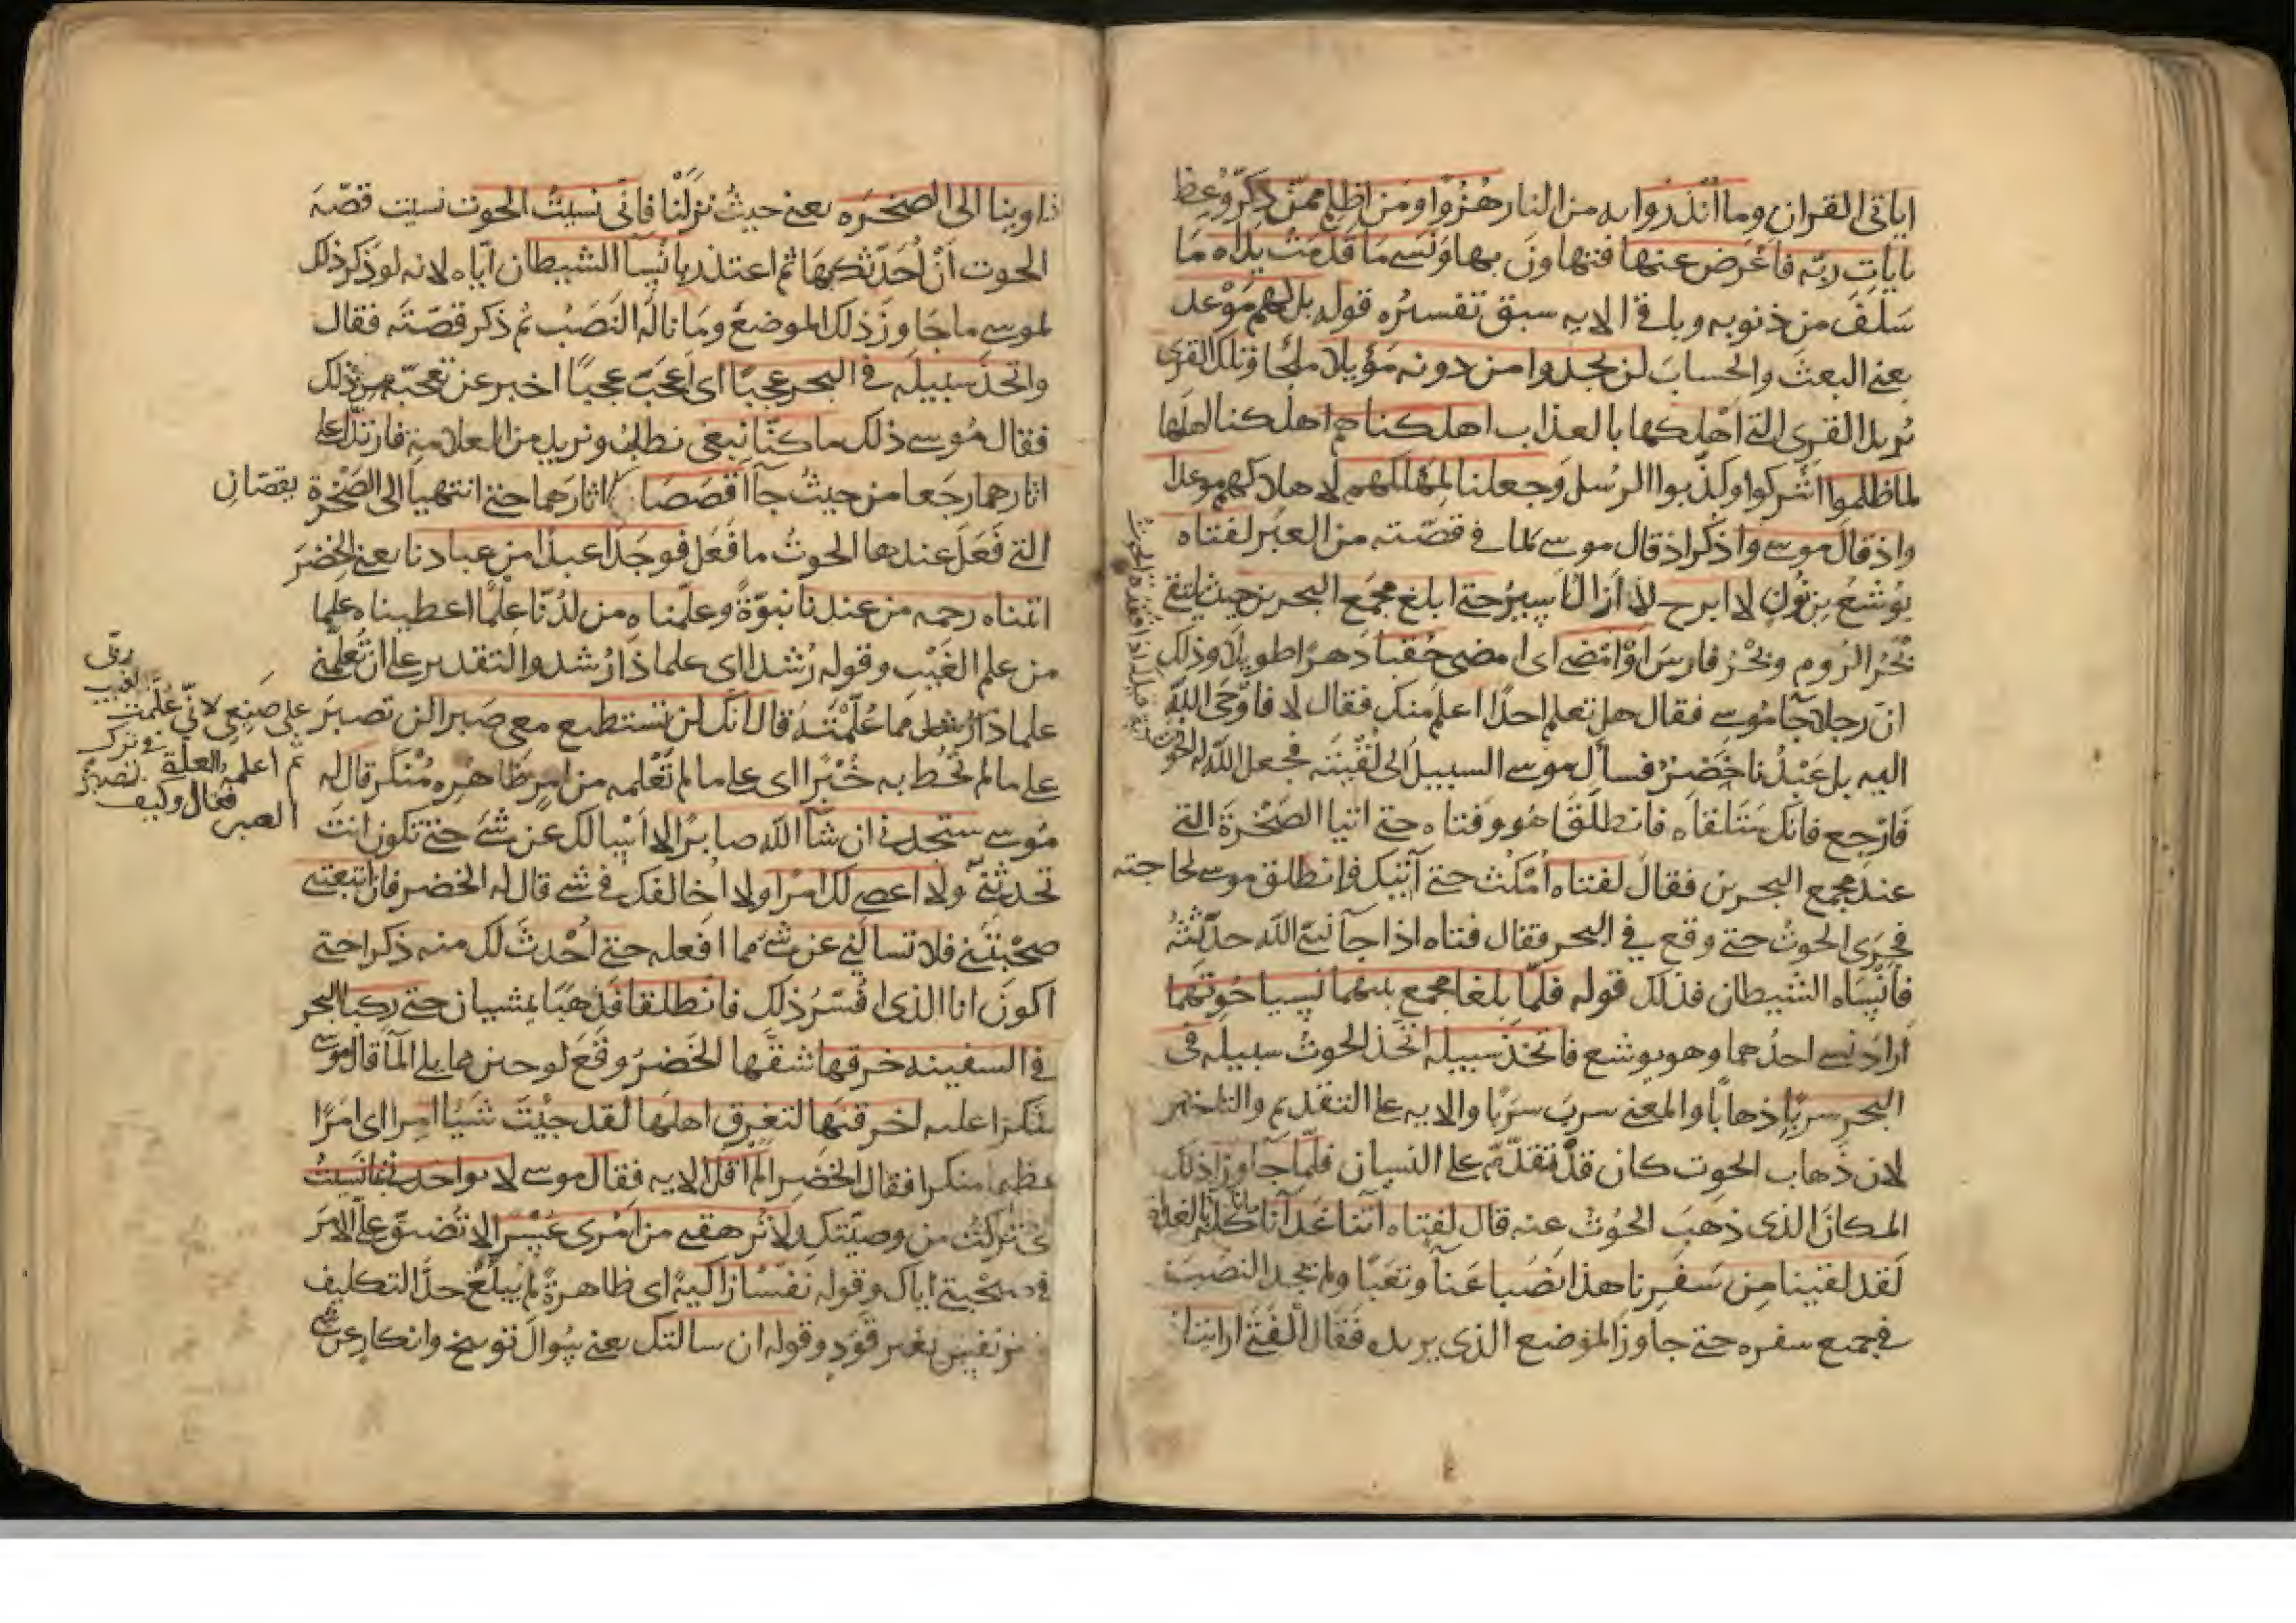 اياتى القران وما انذروا به من النار هُزُوًا ومن اظلم ممّن ذكّر وُعِظ
بايات ربّه فاعرض عنها فتهاون بها ونسى ما قدمت يداه ما
سَلَفَ من ذنوبه وباقى الايه سبق تفسيره قوله بل لهم مَوْعد
يعنى البعث والحساب لن يجدوا من دونه مَوْيلا ملجا وتلك القرى
يُريد القرى التى اهلكها بالعذاب اهلكناهم اهلكنا اهلها
لما ظلموا اشركوا وكذبوا الرسل وجعلنا لمهلكهم لاهلاكهم موعدا
واذ قال موسى واذكر اذ قال موسى لما فى قصّته من العبر لفتاه
يُوشع بن نُون لا ابرح لا ازال اسير حتى ابلغ مجمع البحرين حيث يلتقى
بَحْرُ الرُوم وبَحْرُ فارس اوْ امْضى اى امضى حُقُبا دَهرًا طويلا وذلك
انّ رجلا جآ موسى فقال هل تعلم احدًا اعلم منك فقال لا فاوْحَى الله
اليه بل عَبْدُنا خَضِرٌ فسأل موسى السبيل الى لُقْيَته فجعل الله له الحوت آية
فارجع فانك ستلقاه فانطلق هو وفتاه حتى اتيا الصَّخْرَة التى
عند مجمع البحرين فقال لفتاه امْكُث حتى آتيك فانطلق موسى لحاجته
فجرى الحوتُ حتى وقع فى البحر فقال فتاه اذا جآ نبىّ الله حدّثتُهُ
فأنْسَاه الشيطان فذلك قوله فلمّا بلغا مجمع بينهما نسيا حُوتَهُما
اراد نسى احدهما وهو يوشع فاتخذ سبيله اتخذ الحوت سبيله فى
البحر سربًا ذهابًا والمعنى سرب سَرَبًا والايه على التقديم والتاخير
لان ذهاب الحوت كان قد تقدّم على النسيان فلمّا جاوزا ذلك
المكان الذى ذهب الحُوتُ عنه قال لفتاه آتنا غدآنا ما ناكله بالغداة
لقد لقينا مِن سَفَرِنا هذا نَصَبا عَنآ وتعَبًا ولم يجد النصبَ
فى جميع سفره حتى جاوز الموضع الذى يريده فقال الفتى ارايت
قيل له اذا فقدت الحوت
اذ اوينا الى الصخره يعنى حيث نزَلْنا فانى نسيتُ الحوت نسيت قصّة
الحوت أنْ أحدّثكها ثم اعتذر بانسآ الشيطان ايّاه لانه لو ذكر ذلك
لموسى ما جَاوزَ ذلك الموضع وما نالَهُ النَصَبُ ثم ذكر قصّتَه فقال
واتخذ سبيله فى البحر عجبًا اى اعجَبَ عجبًا اخبر عن تعجّبه من ذلك
فقال مُوسى ذلك ما كنّا نبغى نطلبُ ونريد من العلامة فارتدّا على
اثارهما رجعا من حيث جآا قَصَصًا اثارهما حتى انتهيا الى الصَّخْرة
يقصّان
التى فعل عندها الحوت ما فعل فوجدا عبدا من عبادنا يعنى الخضر
اتيناه رحمه من عندنا نبوّةً وعلّمناه من لدُنّا عِلْمًا اعطيناه علما
من علم الغَيْب وقوله رُشدا اى علما ذا رُشد والتقدير على ان تُعلّمنى
علما ذا رُشد مما عُلّمْتَهُ قال انك لن تستطيع معى صبرا لن تصبر
على صنعى لانّى عُلّمت
ربّى
ثم أعلمه بالعلّة فى ترك
الصبر فقال وكيف تصبرُ
على ما لم تُحُط به خُبْرًا اى على ما لم تَعْلمه من امرٍ ظاهره مُنْكر قال له
مُوسى ستجدنى ان شآ الله صابرًا لا اسالك عن شَىْ حتى تكون انت
تحدثنى ولا اعصى لك امْرًا ولا اخالفك فى شى قال له الخضر فان اتبعتنى
صَحِبْتَنى فلا تسالنى عن شىٔ مما افعله حتى أحدث لك منه ذكرا حتى
اكون انا الذى افسّرُ ذلك فانطلقا فذَهبَا يمشيان حتى ركبا البحر
فى السفينه خرقها شقّها الخَضِرُ وقَلَع لوحين مما يلى المآ قال موسى
منكرًا عليه أخرقتها لتغرق اهلها لقد جِئْتَ شيئا امرا اى امرًا
عظيما منكرا فقال الخَضِر الم اقل الايه فقال موسى لا تواخذنى بما نسيتُ
اى تركتُ من وصيّتك ولا تُرْهقنى من امْرى عُسْرًا لا تُضيّق علىّ الامْر
فى صحبتى اياك وقوله نفسًا زاكيةً اى طاهرةً لم يبلُغْ حدّ التكليف
بغير نفس بغير قَوَدٍ وقوله ان سالتك يعنى سُوالَ توبيخ وانكار عن شى